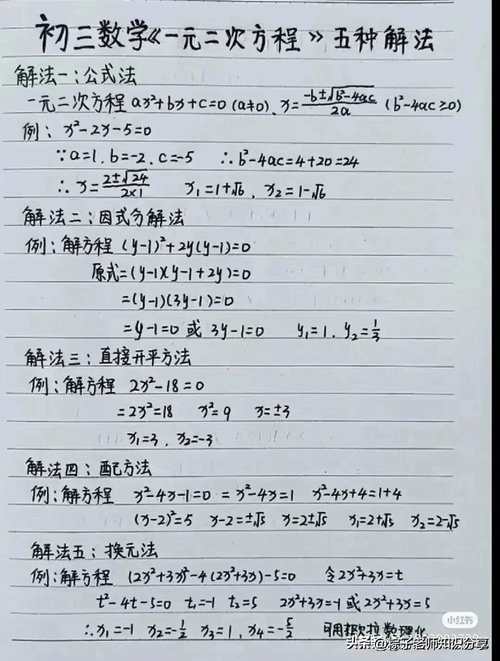 初三数学《一元二次方程》五种解法
解法一：公式法
一元二次方程 ax²+bx+c=0 (a≠0). x=(-b±√(b²-4ac))/2a (b²-4ac≥0)
例： x²-2x-5=0
∵a=1. b=-2. c=-5 ∴b²-4ac=4+20=24
∴x=(2±√24)/(2×1) x₁=1+√6, x₂=1-√6
解法二：因式分解法
例：解方程 (y-1)²+2y(y-1)=0
原式=(y-1)(y-1+2y)=0
=(y-1)(3y-1)=0
=y-1=0 或 3y-1=0 y₁=1. y₂=1/3
解法三：直接开平方法
例：解方程 2x²-18=0
=2x²=18 x²=9 x=±3
x₁=3, x₂=-3
解法四：配方法
例：解方程 x²-4x-1=0 =x²-4x=1 x²-4x+4=1+4
(x-2)²=5 x-2=±√5 x=2±√5 x₁=2+√5 x₂=2-√5
解法五：换元法
例：解方程 (2x²+3x)²-4(2x²+3x)-5=0 令2x²+3x=t
t²-4t-5=0 t₁=-1 t₂=5 2x²+3x=-1 或 2x²+3x=5
∴x₁=-1 x₂=-1/2 x₃=1, x₄=-5/2
小红书
头条@粽子老师知识分享